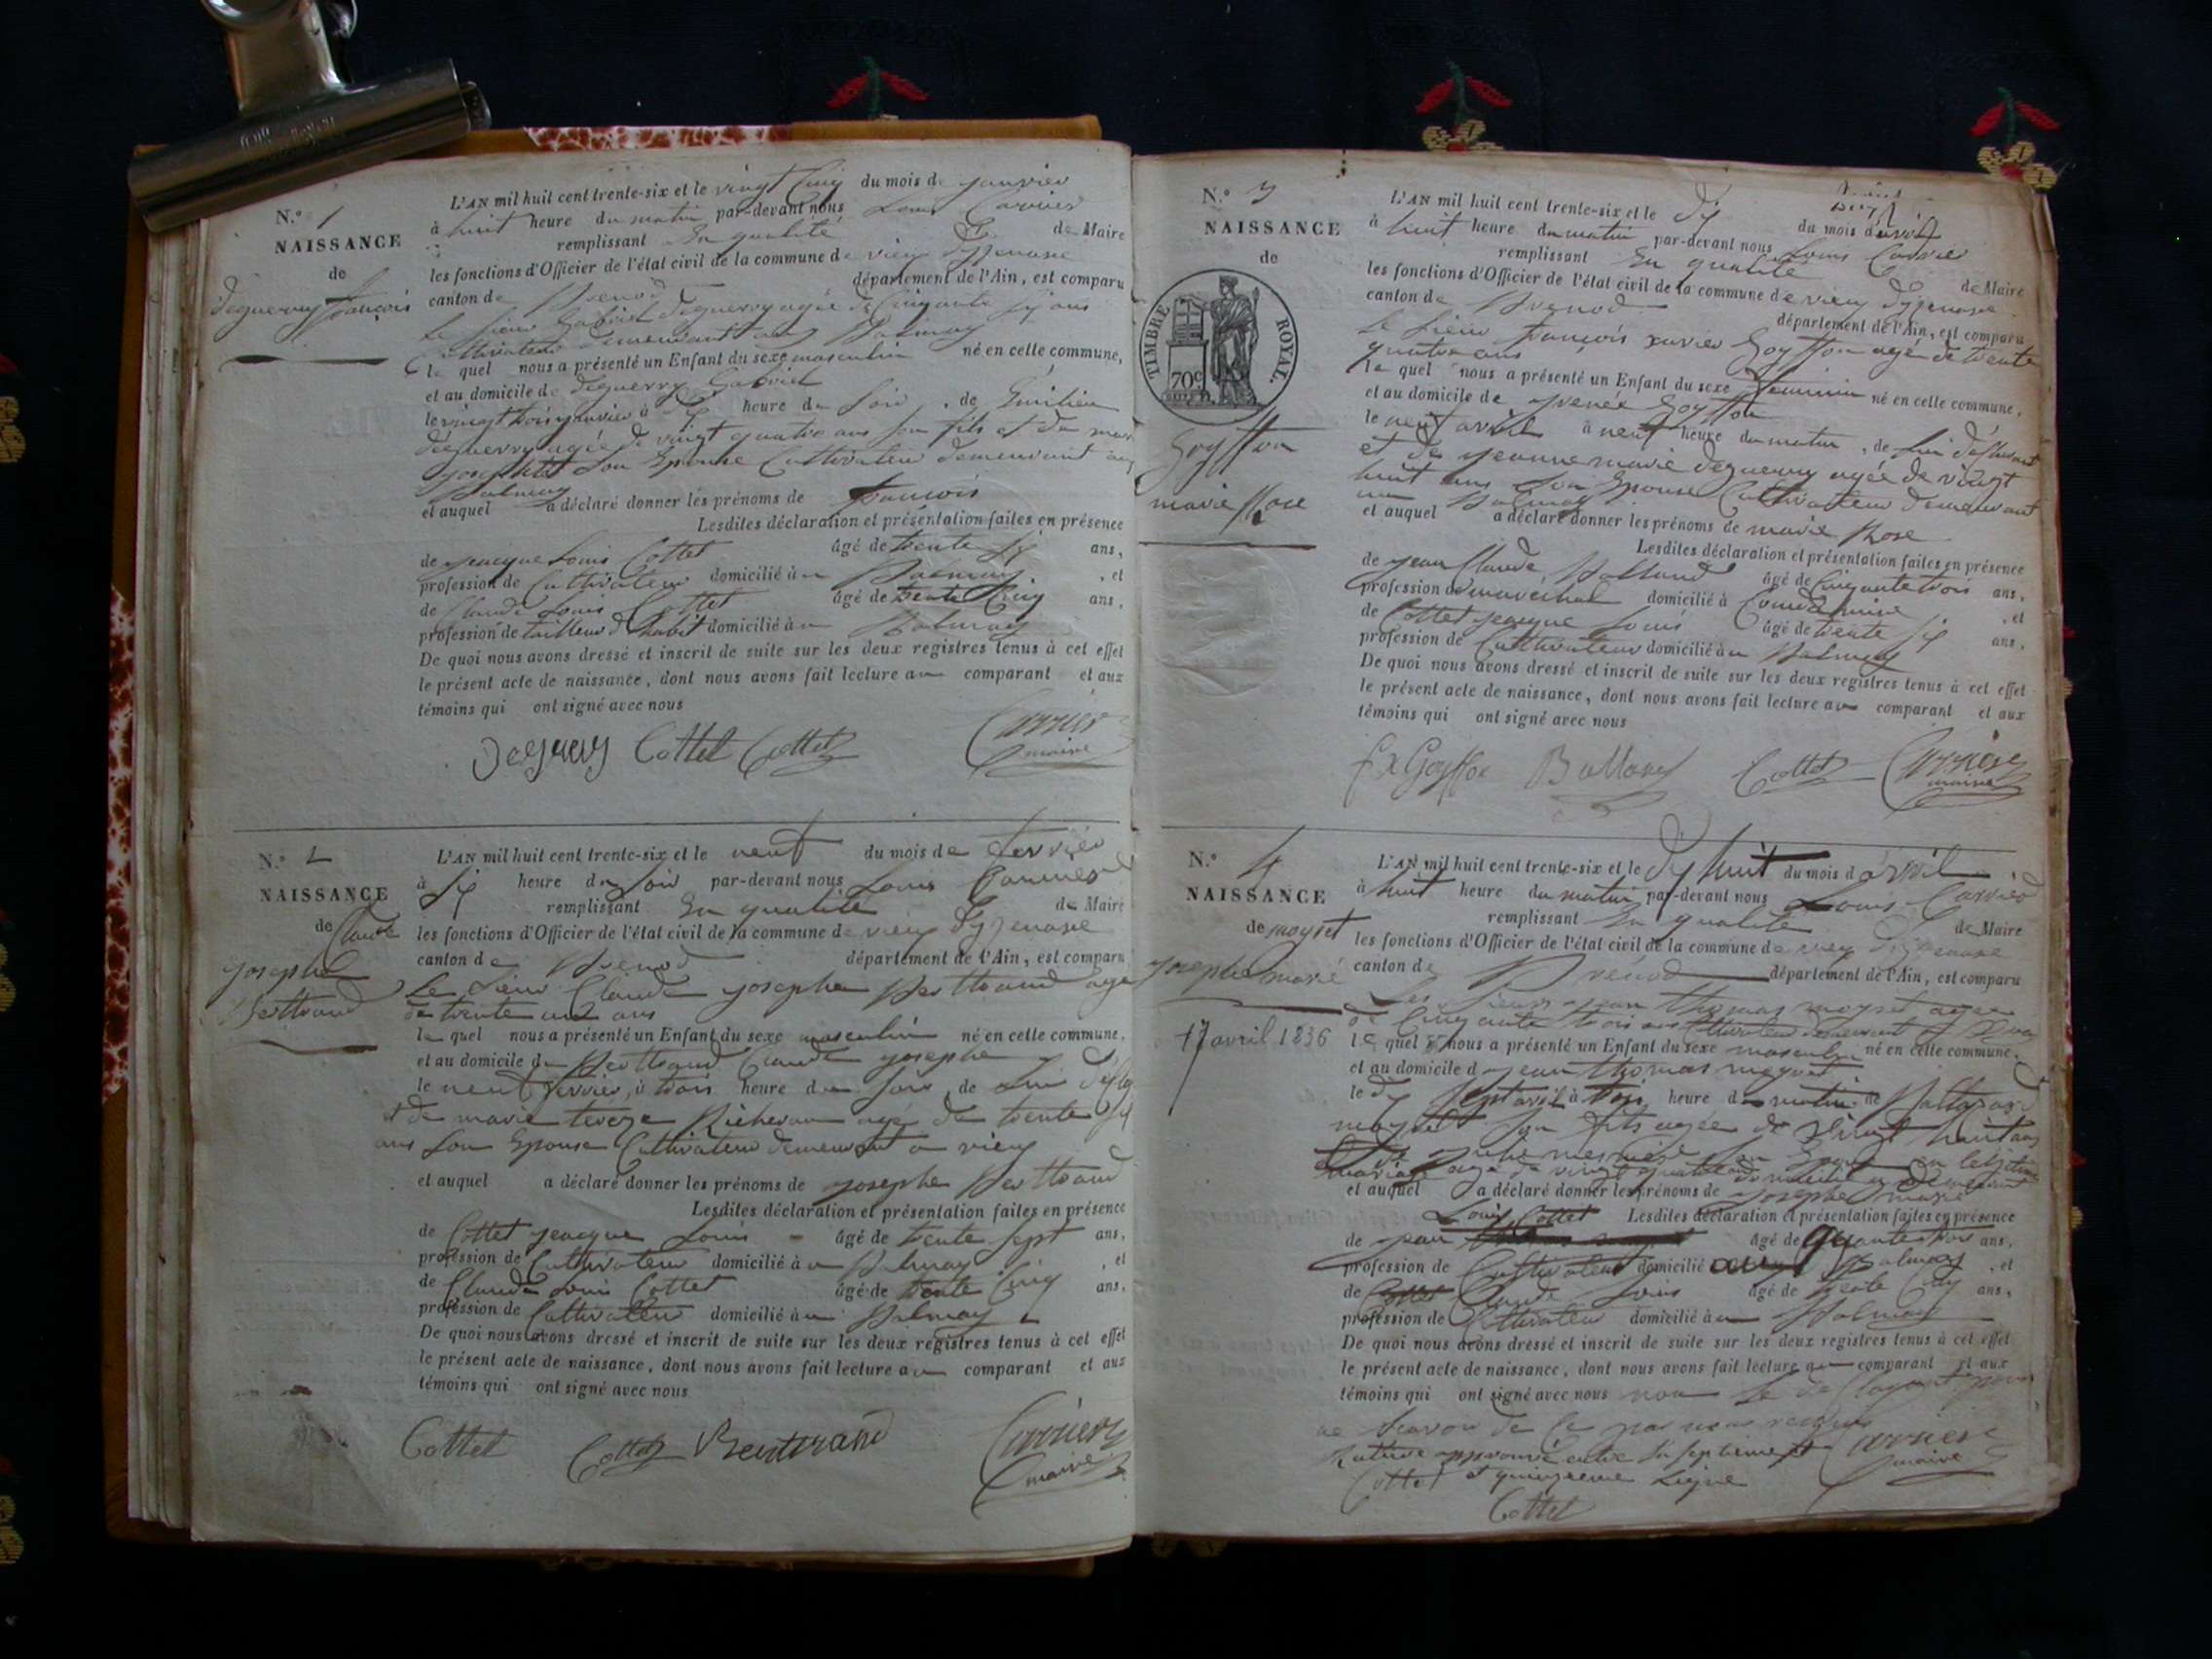 N.° 1
NAISSANCE
de
Deguerry françois
L'AN mil huit cent trente-six et le vingt Cinq du mois de janvier
à huit heure du matin par-devant nous Louis Carrier
remplissant En qualité de Maire
les fonctions d'Officier de l'état civil de la commune de vieu Dyzenave
canton de Brenod département de l'Ain, est comparu
Le sieur Gabriel Deguerry agée de Cinquante six ans
Cultivateur demeurant au Balmay
le quel nous a présenté un Enfant du sexe masculin né en cette commune,
et au domicile de Deguerry Gabriel
le vingt trois janvier à dix heure du soir, de Emilien
Deguerry agée de vingt quatre ans son fils et de
son Epouse Cultivateur demeurant au
Balmay
et auquel a déclaré donner les prénoms de francois
Lesdites déclaration et présentation faites en présence
de jeacque Louis Cottet âgé de trente six ans,
profession de Cultivateur domicilié au Balmay, et
de Claude Louis Cottet âgé de trente Cinq ans,
profession de tailleur d'habit domicilié au Balmay
De quoi nous avons dressé et inscrit de suite sur les deux registres tenus à cet effet
le présent acte de naissance, dont nous avons fait lecture au comparant et aux
témoins qui ont signé avec nous
Deguery Cottet Cottet Carrier
maire
N.° 2
NAISSANCE
de Claude
josephe
Berttrand
L'AN mil huit cent trente-six et le neuf du mois de fevrier
à six heure du soir par-devant nous Louis Carrier
remplissant En qualité de Maire
les fonctions d'Officier de l'état civil de la commune de vieu Dyzenave
canton de Brenod département de l'Ain, est comparu
Le sieur Claude josephe Berttrand age
de trente ans
le quel nous a présenté un Enfant du sexe masculin né en cette commune,
et au domicile du Berttrand Claude josephe
le neuf fevrier, à trois heure du soir, de Lui
et de marie tereze Richerau age de trente six
ans son Epouse Cultivateur demeurant a vieu
et auquel a déclaré donner les prénoms de josephe Berttrand
Lesdites déclaration et présentation faites en présence
de Cottet jeacque Louis âgé de trente sept ans,
profession de Cultivateur domicilié au Balmay, et
de Claude Louis Cottet âgé de trente Cinq ans,
profession de Cultivateur domicilié au Balmay
De quoi nous avons dressé et inscrit de suite sur les deux registres tenus à cet effet
le présent acte de naissance, dont nous avons fait lecture au comparant et aux
témoins qui ont signé avec nous
Cottet Cottet Bertrand Carrier
maire
N.° 3
NAISSANCE
de
TIMBRE ROYAL.
70c
Goyffon
marie Rose
L'AN mil huit cent trente-six et le dix du mois d'avril
à huit heure du matin par-devant nous Louis Carrier
remplissant En qualité de Maire
les fonctions d'Officier de l'état civil de la commune de vieu Dyzenave
canton de Brenod département de l'Ain, est comparu
Le Sieur francois xavier Goyffon agé de trente
quatre ans
le quel nous a présenté un Enfant du sexe feminin né en cette commune,
et au domicile de Goyffon
le neuf avril à neuf heure du matin, de Lui déclarant
et de jeanne marie Deguerry agée de vingt
huit ans son Epouse Cultivateur demeurant
au Balmay
et auquel a déclaré donner les prénoms de marie Rose
Lesdites déclaration et présentation faites en présence
de jean Claude Balland âgé de Cinquante trois ans,
profession de marechal domicilié à Condamine, et
de Cottet jeacque Louis âgé de trente six ans,
profession de Cultivateur domicilié au Balmay
De quoi nous avons dressé et inscrit de suite sur les deux registres tenus à cet effet
le présent acte de naissance, dont nous avons fait lecture au comparant et aux
témoins qui ont signé avec nous
fx Goyffon Balland Cottet Carrier
maire
N.° 4
NAISSANCE
de moyret
josephe marie
17 avril 1836
L'AN mil huit cent trente-six et le dix huit du mois d'avril
à huit heure du matin par-devant nous Louis Carrier
remplissant En qualité de Maire
les fonctions d'Officier de l'état civil de la commune de vieu Dyzenave
canton de Brénod département de l'Ain, est comparu
Le Sieur jean thomas moyret agée
de Cinquante trois ans Cultivateur demeurant
le quel nous a présenté un Enfant du sexe masculin né en cette commune,
et au domicile d jean thomas moyret
le dix sept avril à trois heure du matin de Baltazard
moyret son fils agée de vingt huit ans
son Epouse en legitime
mariage agé de vingt quatre ans
et auquel a déclaré donner les prénoms de josephe marie
Louis Cottet Lesdites déclaration et présentation faites en présence
de jean âgé de ans,
profession de Cultivateur domicilié au Balmay, et
de Cottet Claude Louis âgé de trente Cinq ans,
profession de Cultivateur domicilié au Balmay
De quoi nous avons dressé et inscrit de suite sur les deux registres tenus à cet effet
le présent acte de naissance, dont nous avons fait lecture au comparant et aux
témoins qui ont signé avec nous non le declarant pour
ne savoir de ce par nous requis
Rature approuvé entre la septieme Carrier
Cottet et quinzieme Ligne maire
Cottet